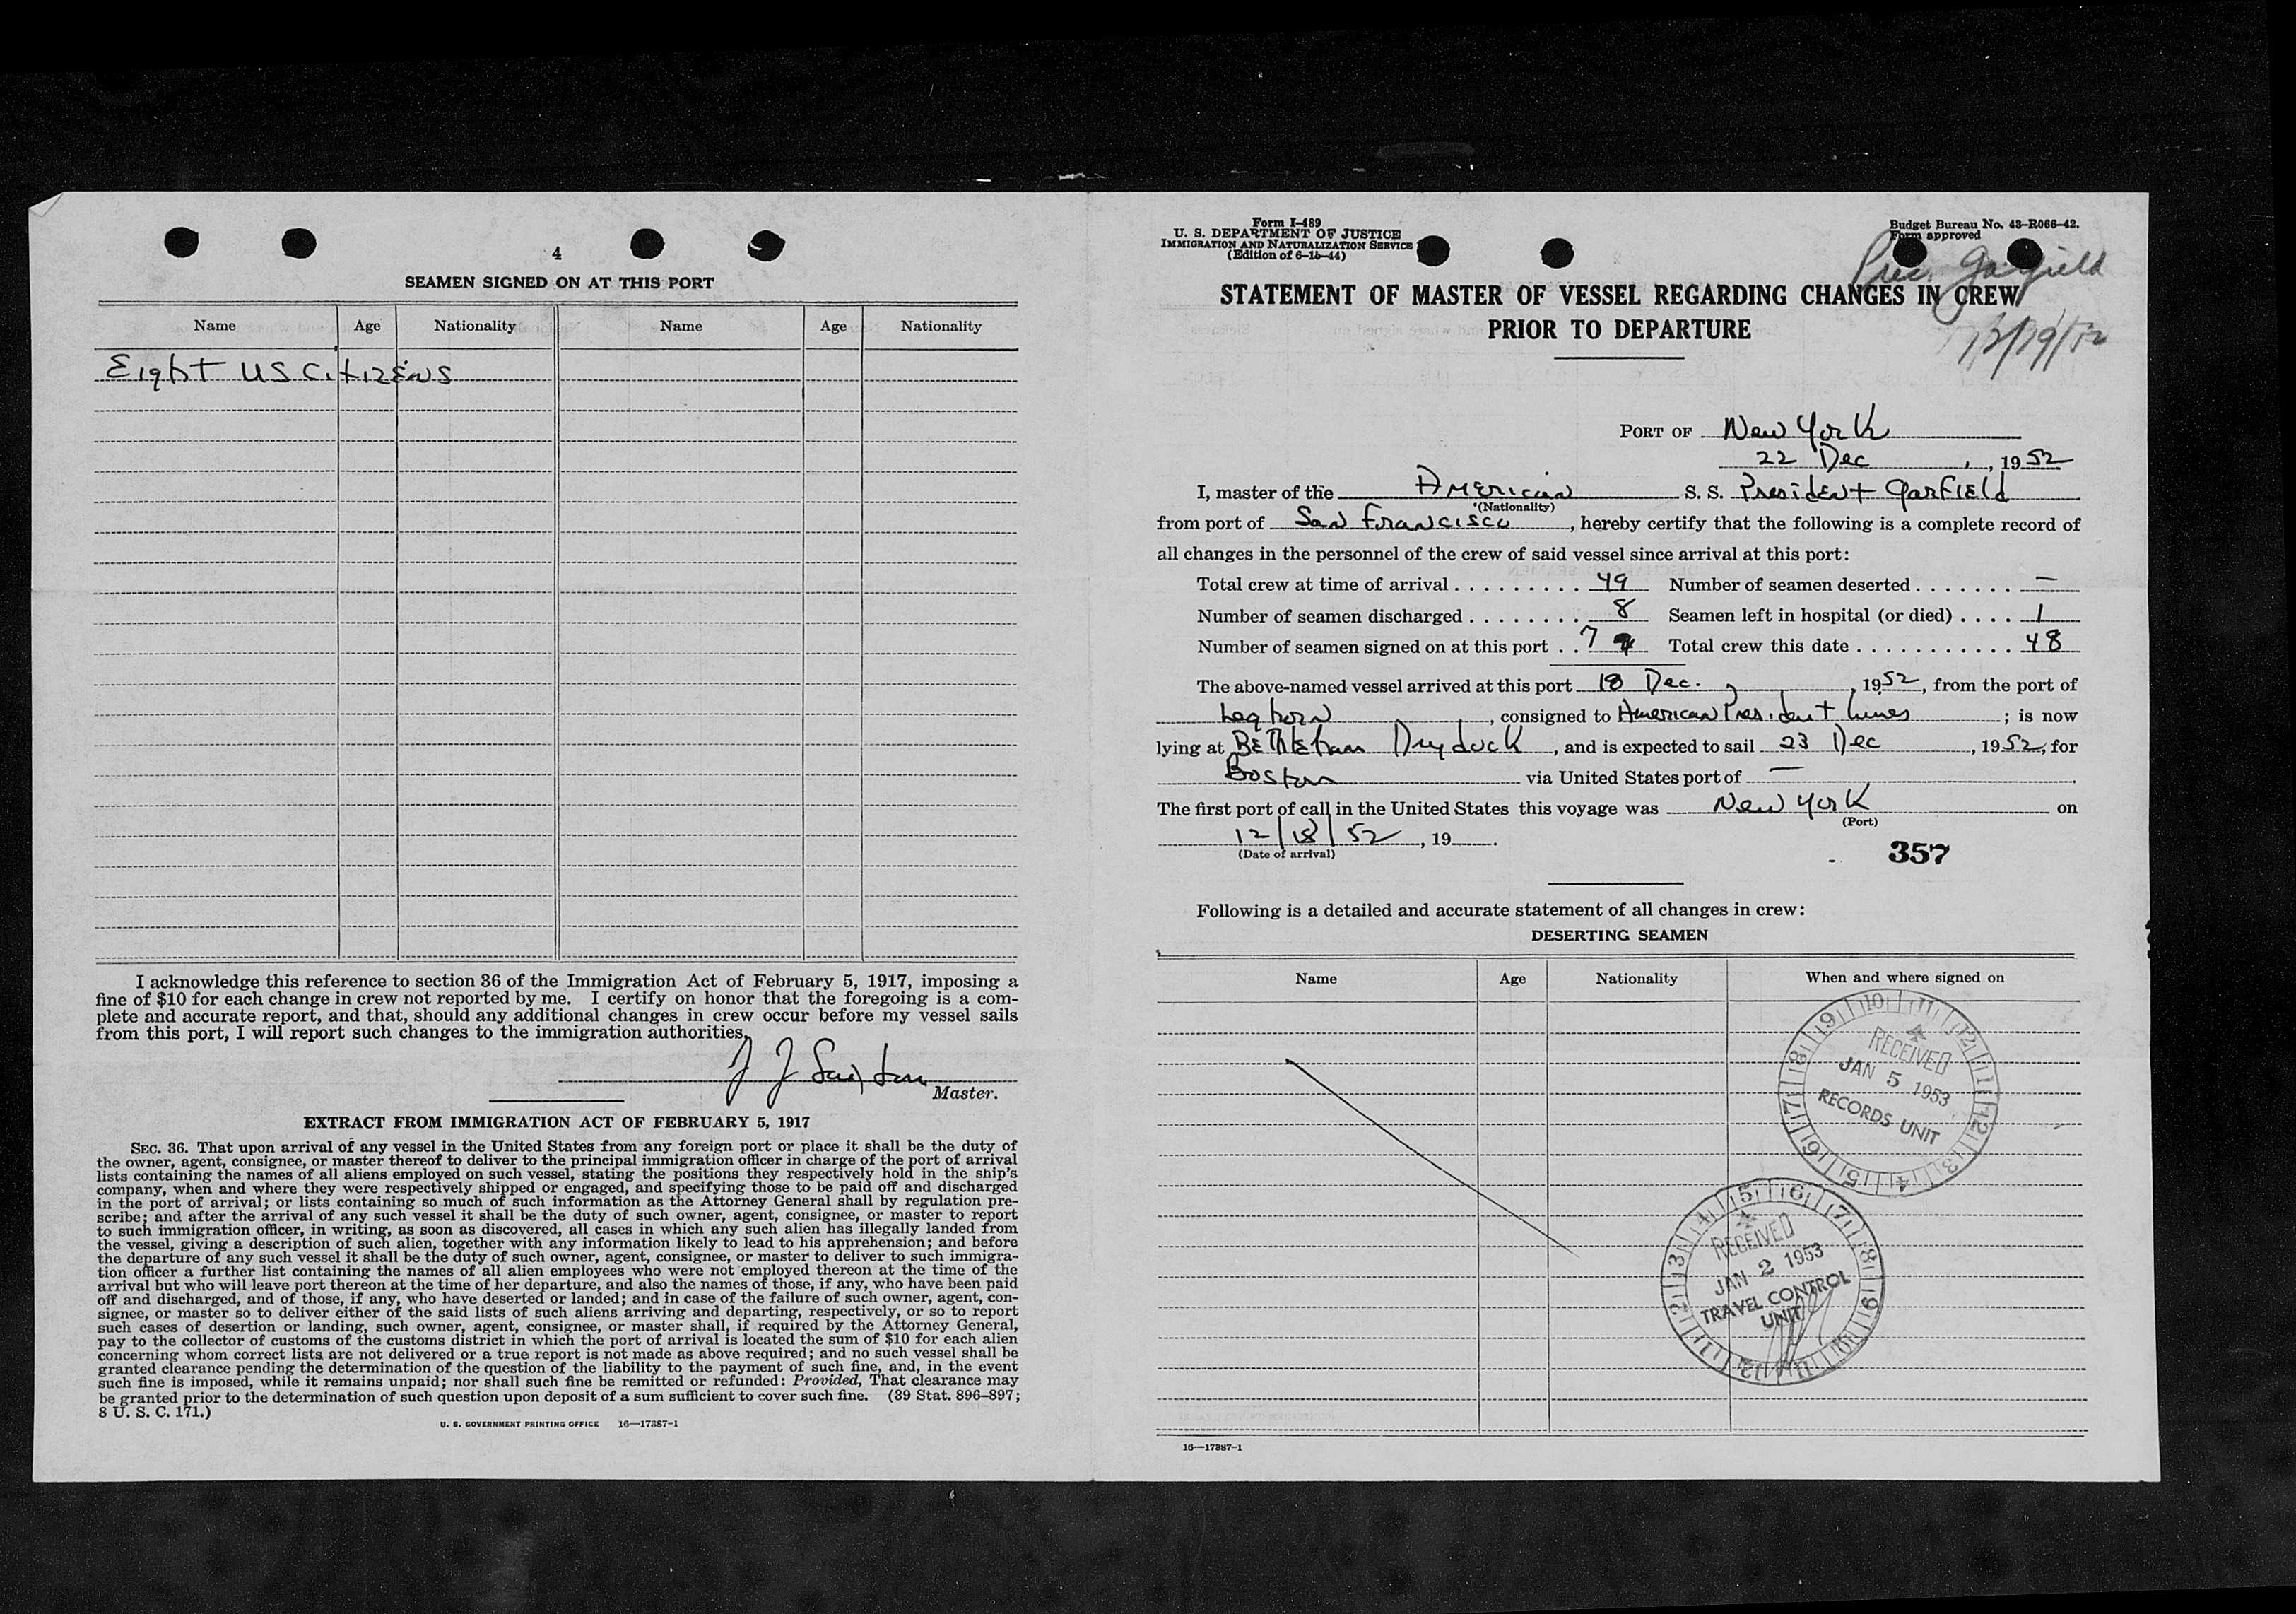 4
SEAMEN SIGNED ON AT THIS PORT
Name Age Nationality Name Age Nationality
Eight US Citizens
I acknowledge this reference to section 36 of the Immigration Act of February 5, 1917, imposing a
fine of $10 for each change in crew not reported by me. I certify on honor that the foregoing is a com-
plete and accurate report, and that, should any additional changes in crew occur before my vessel sails
from this port, I will report such changes to the immigration authorities.
J J Saxton
Master.
EXTRACT FROM IMMIGRATION ACT OF FEBRUARY 5, 1917
SEC. 36. That upon arrival of any vessel in the United States from any foreign port or place it shall be the duty of
the owner, agent, consignee, or master thereof to deliver to the principal immigration officer in charge of the port of arrival
lists containing the names of all aliens employed on such vessel, stating the positions they respectively hold in the ship's
company, when and where they were respectively shipped or engaged, and specifying those to be paid off and discharged
in the port of arrival; or lists containing so much of such information as the Attorney General shall by regulation pre-
scribe; and after the arrival of any such vessel it shall be the duty of such owner, agent, consignee, or master to report
to such immigration officer, in writing, as soon as discovered, all cases in which any such alien has illegally landed from
the vessel, giving a description of such alien, together with any information likely to lead to his apprehension; and before
the departure of any such vessel it shall be the duty of such owner, agent, consignee, or master to deliver to such immigra-
tion officer a further list containing the names of all alien employees who were not employed thereon at the time of the
arrival but who will leave port thereon at the time of her departure, and also the names of those, if any, who have been paid
off and discharged, and of those, if any, who have deserted or landed; and in case of the failure of such owner, agent, con-
signee, or master so to deliver either of the said lists of such aliens arriving and departing, respectively, or so to report
such cases of desertion or landing, such owner, agent, consignee, or master shall, if required by the Attorney General,
pay to the collector of customs of the customs district in which the port of arrival is located the sum of $10 for each alien
concerning whom correct lists are not delivered or a true report is not made as above required; and no such vessel shall be
granted clearance pending the determination of the question of the liability to the payment of such fine, and, in the event
such fine is imposed, while it remains unpaid; nor shall such fine be remitted or refunded: Provided, That clearance may
be granted prior to the determination of such question upon deposit of a sum sufficient to cover such fine. (39 Stat. 896–897;
8 U. S. C. 171.)
U. S. GOVERNMENT PRINTING OFFICE 16—17387-1
Form I-489
U. S. DEPARTMENT OF JUSTICE
IMMIGRATION AND NATURALIZATION SERVICE
(Edition of 6-15-44)
Budget Bureau No. 43-R066-42.
Form approved
Pres. Garfield
12/19/52
STATEMENT OF MASTER OF VESSEL REGARDING CHANGES IN CREW
PRIOR TO DEPARTURE
PORT OF New York
22 Dec , 1952
I, master of the American S. S. President Garfield
(Nationality)
from port of San Francisco , hereby certify that the following is a complete record of
all changes in the personnel of the crew of said vessel since arrival at this port:
Total crew at time of arrival . . . . . . . . . . 49 Number of seamen deserted . . . . . . . —
Number of seamen discharged . . . . . . . . . 8 Seamen left in hospital (or died) . . . . 1
Number of seamen signed on at this port . . 7 Total crew this date . . . . . . . . . . . . 48
The above-named vessel arrived at this port 18 Dec. , 1952, from the port of
Leghorn , consigned to American President Lines ; is now
lying at Bethlehem Drydock , and is expected to sail 23 Dec , 1952, for
Boston via United States port of —
The first port of call in the United States this voyage was New York on
(Port)
12/18/52 , 19 .
(Date of arrival)
357
Following is a detailed and accurate statement of all changes in crew:
DESERTING SEAMEN
Name Age Nationality When and where signed on
RECEIVED
JAN 5 1953
RECORDS UNIT
RECEIVED
JAN 2 1953
TRAVEL CONTROL
UNIT
16—17387-1